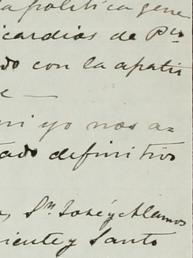 a política gene
cardios de Pto
do con la apatia
e —
ni yo nos a=
tado definitivo
Sn. José y Alamos
iente y Santo